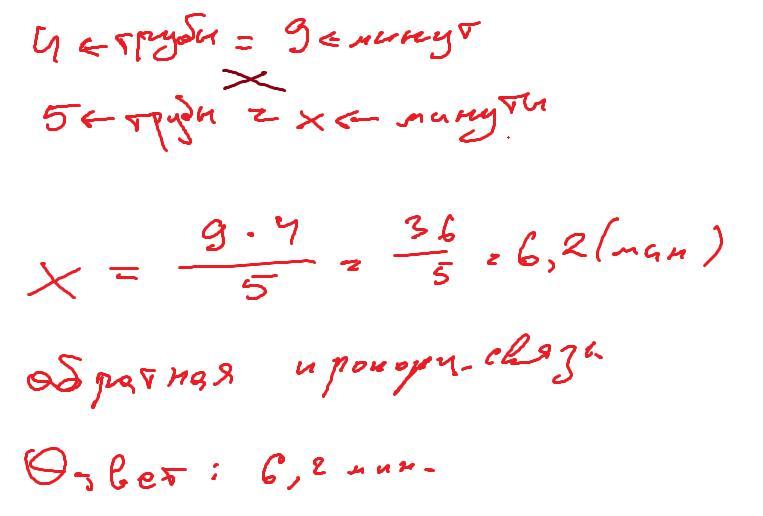 4 ← трубы = 9 ← минут
5 ← трубы = x ← минуты
x = 9 · 4 / 5 = 36 / 5 = 6,2 (мин)
обратная пропорц. связь
Ответ: 6,2 мин.